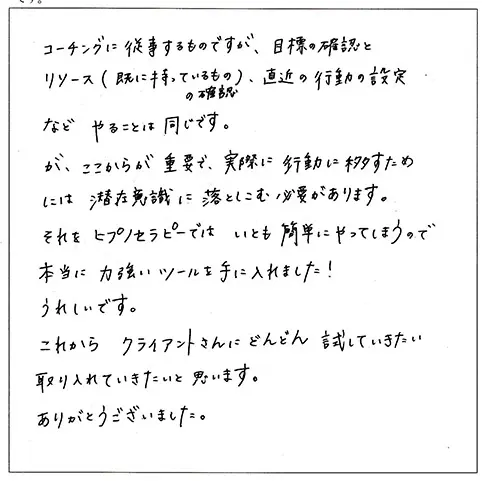 です。
コーチングに従事するものですが、目標の確認と
リソース(既に持っているもの)、直近の行動の設定
の確認
など やることは同じです。
が、ここからが重要で、実際に行動に移すため
には潜在意識に落としこむ必要があります。
それをヒプノセラピーでは いとも簡単にやってしまうので
本当に力強いツールを手に入れました!
うれしいです。
これから クライアントさんにどんどん 試していきたい
取り入れていきたいと思います。
ありがとうございました。